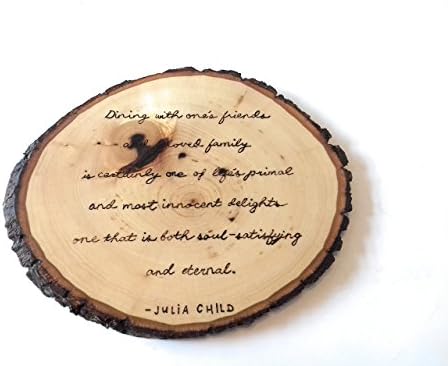 Dining with one's friends
and beloved family
is certainly one of life's primal
and most innocent delights
one that is both soul-satisfying
and eternal.
-JULiA CHILD